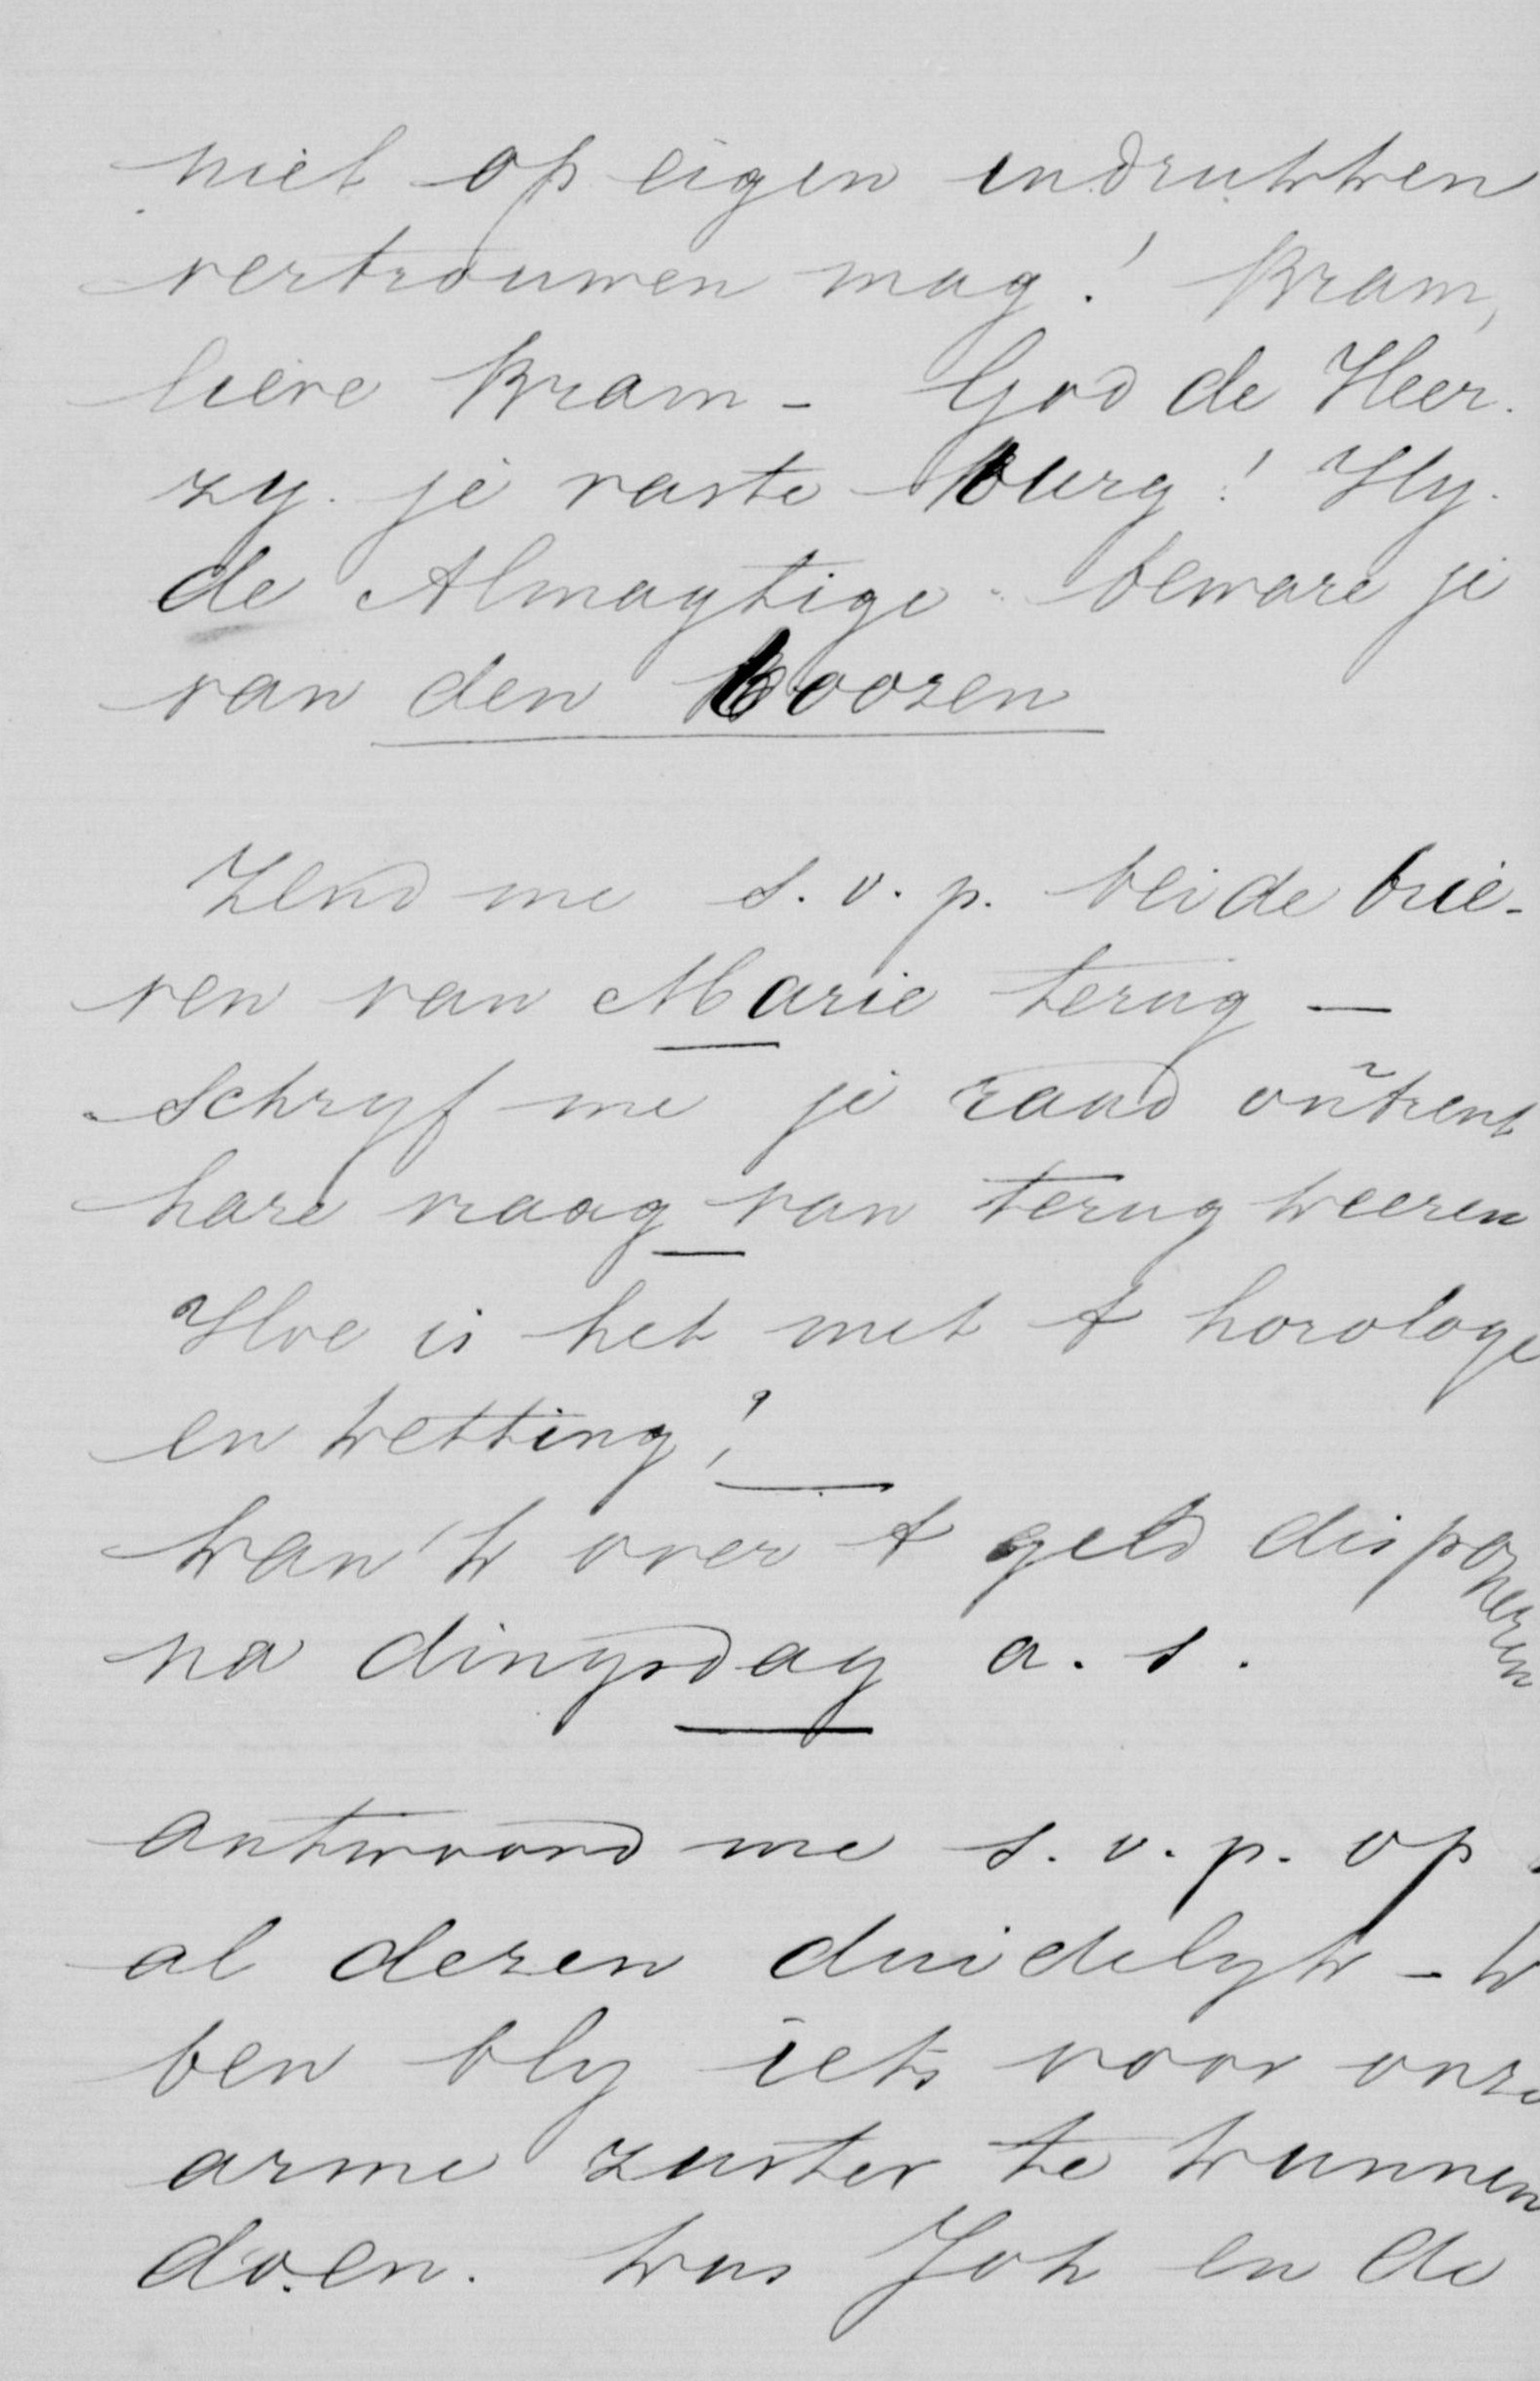 niet op eigen indrukken
vertrouwen mag! Bram,
lieve Bram - God de Heer
zy je vaste Burg! Hy
de Almagtige beware je
van den boozen
Zend me s.v.p. beide brie-
ven van Marie terug -
Schryf me je raad omtrent
hare vraag van terug keeren
Hoe is het met t horologe
en ketting?
kan 'k over t geld disponeren
na dingsdag a.s.
Antwoord me s.v.p. op
al dezen duidelyk - k
ben bly iets voor onze
arme zuster te kunnen
doen. kus Joh en de